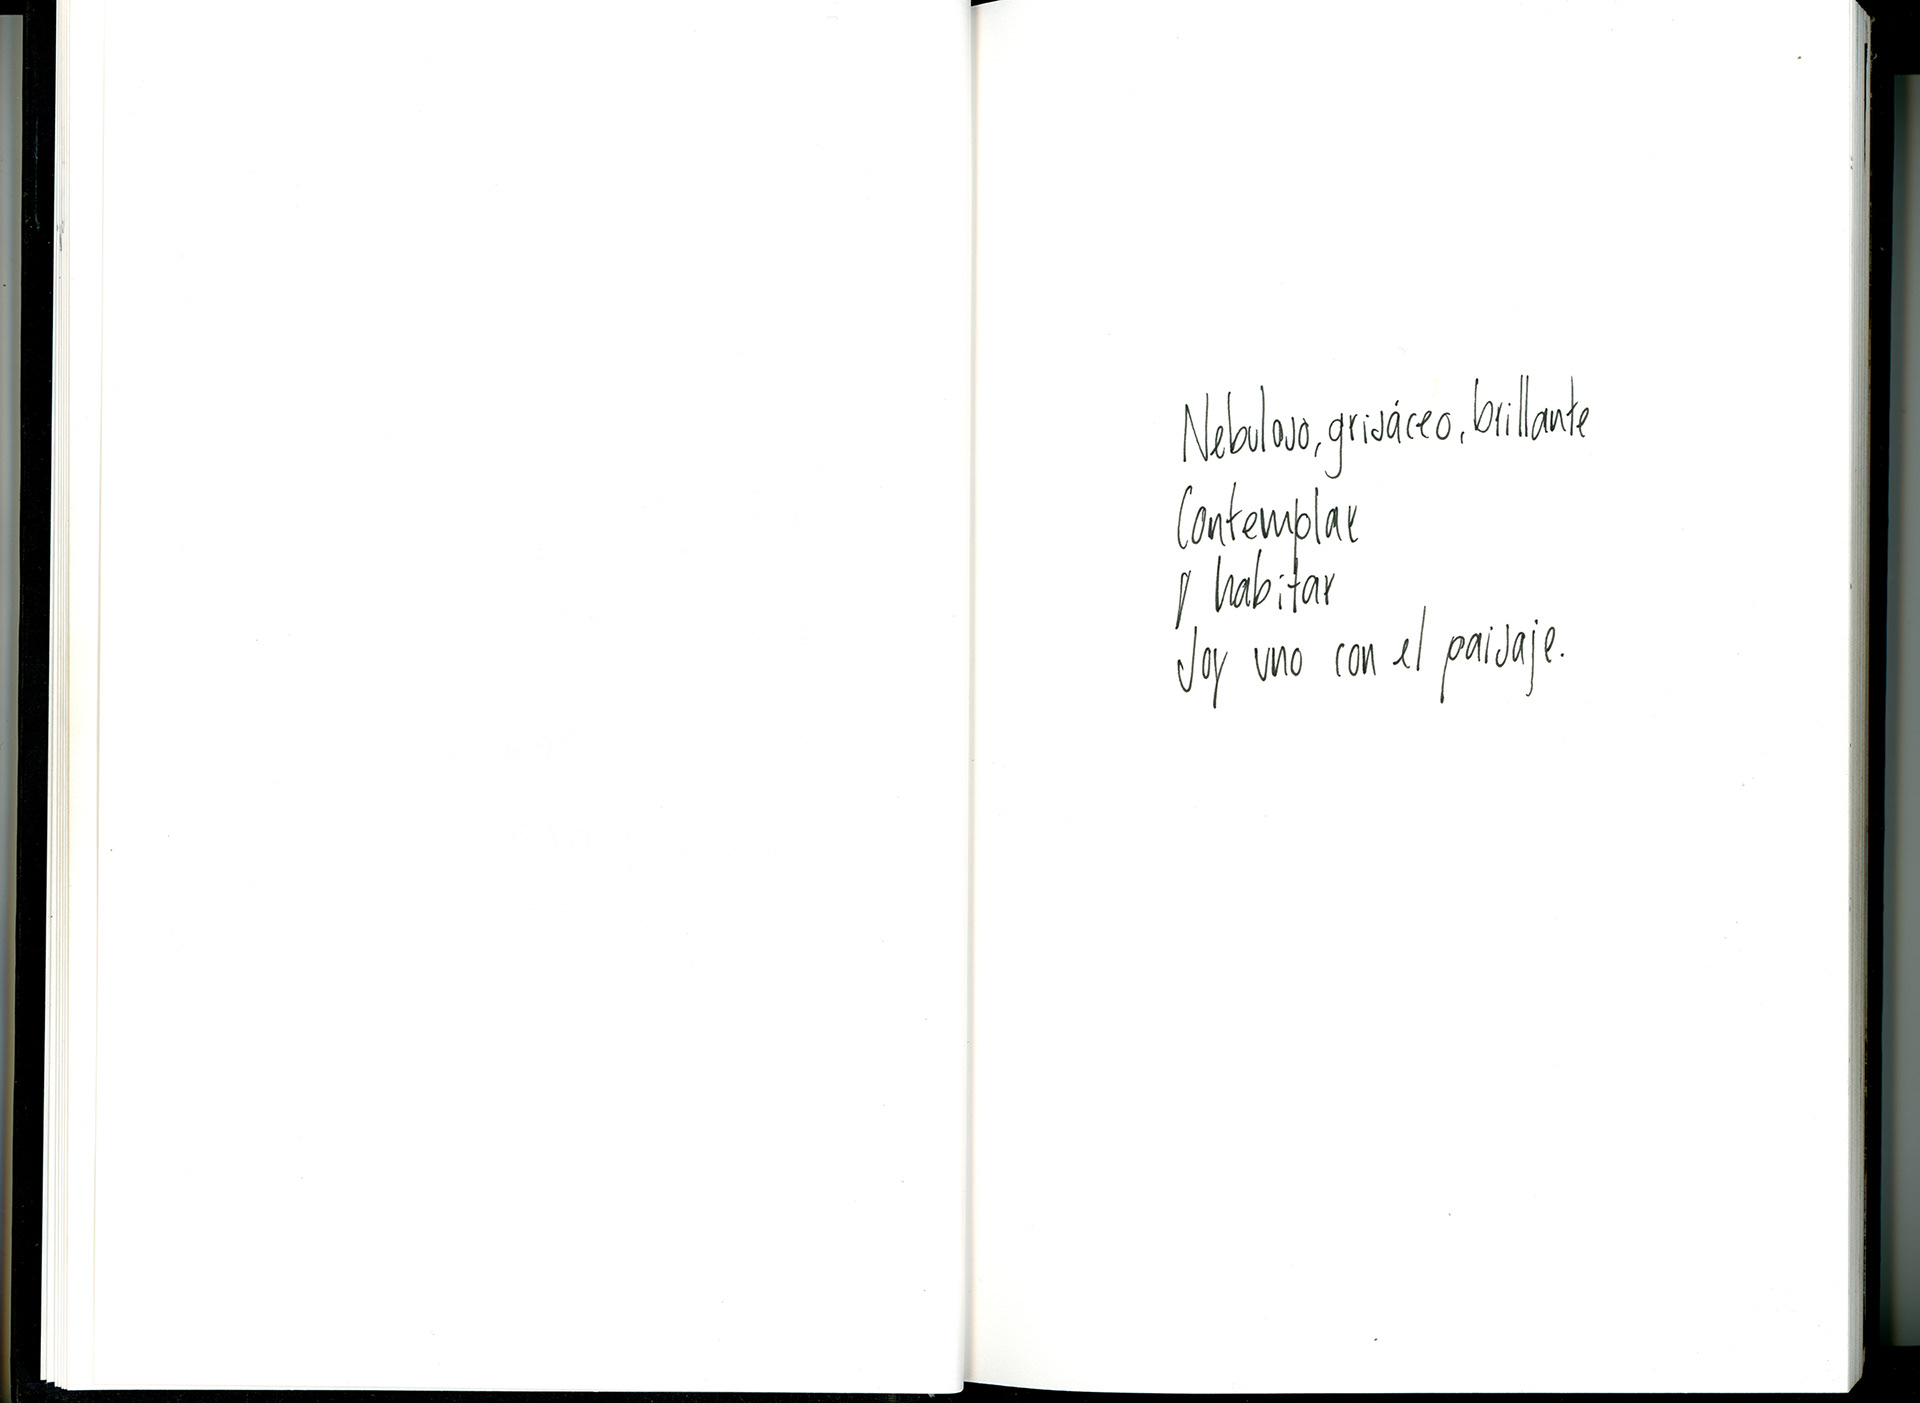 Nebuloso, grisáceo, brillante
Contemplar
y habitar
Soy uno con el paisaje.